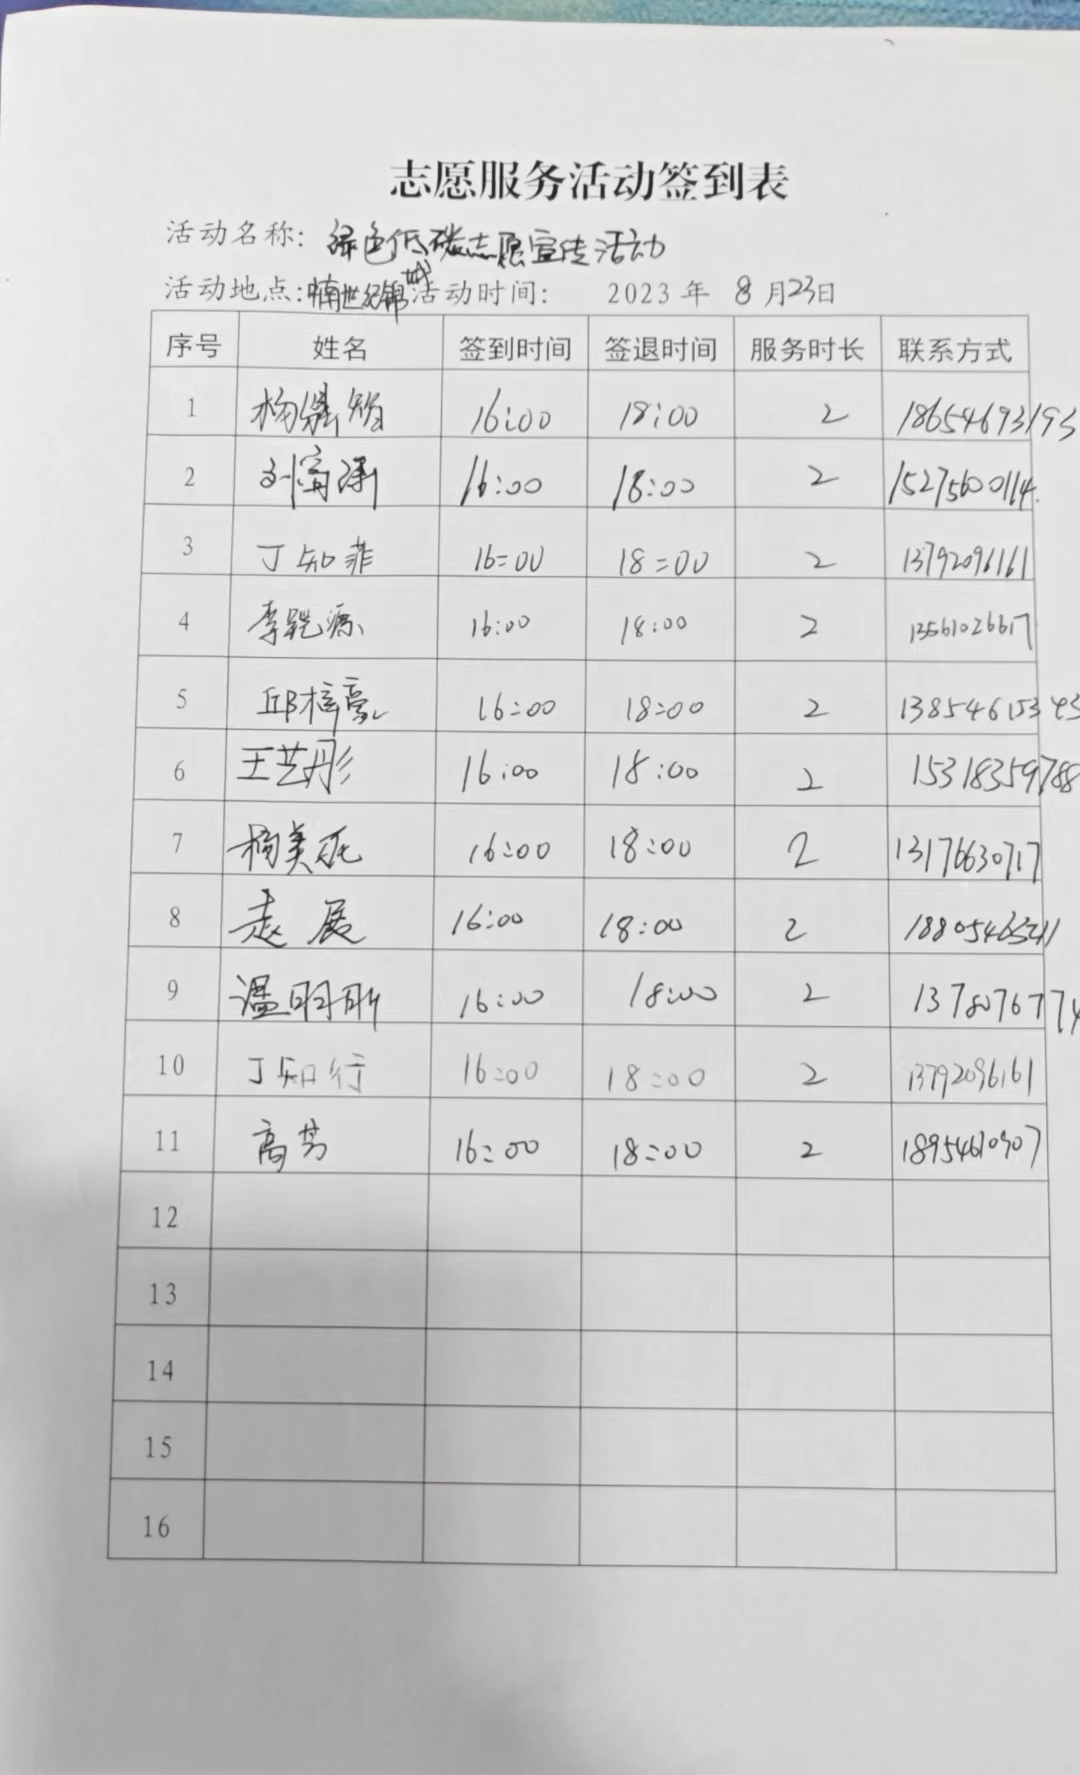 志愿服务活动签到表
活动名称: 绿色低碳志愿宣传活动
活动地点: 世纪锦城 活动时间: 2023年 8月23日
序号 姓名 签到时间 签退时间 服务时长 联系方式
1 杨 16:00 18:00 2 18654693193
2 刘富 16:00 18:00 2 15275600114
3 丁知菲 16:00 18:00 2 13792096161
4 李 源 16:00 18:00 2 13561026617
5 邱梓豪 16:00 18:00 2 13854615343
6 王艺彤 16:00 18:00 2 15318359788
7 杨美 16:00 18:00 2 13176630717
8 赵展 16:00 18:00 2
9 温明昕 16:00 18:00 2
10 丁知行 16:00 18:00 2 13792096161
11 高芳 16:00 18:00 2 18954610907
12
13
14
15
16